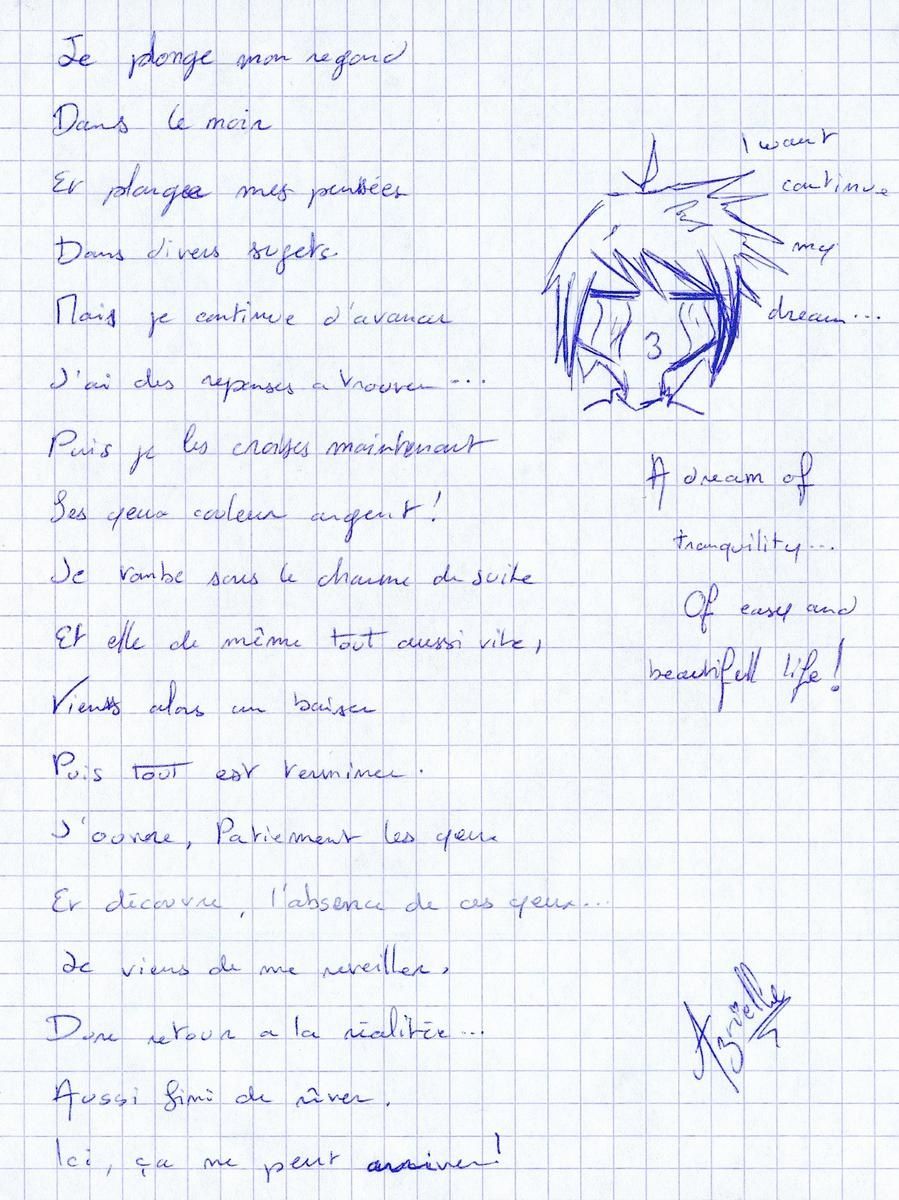 Je plonge mon regard
Dans le noir
Et plonge mes pensées
Dans divers sujets
Mais je continue d'avancer
J'ai des reponses a trouver ...
Puis je les croises maintenant
Ses yeux couleur argent !
Je tombe sous le charme de suite
Et elle de même tout aussi vite,
Viens alors un baiser
Puis tout est terminer.
J'ouvre, Patiement les yeux
Et découvre, l'absence de ces yeux...
Je viens de me reveiller,
Donc retour a la réalitée...
Aussi fini de rêver.
Ici, ça ne peut arriver!
I want
continue
my
dream...
3
A dream of
tranquility...
Of easy and
beautifull life!